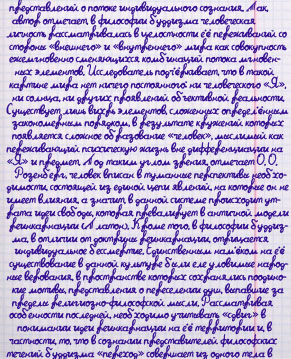 представлений о потоке индивидуального сознания. Так,
автор отмечает, в философии буддизма человеческая
личность рассматривалась в целостности её переживаний со
стороны «внешнего» и «внутреннего» мира как совокупность
ежемгновенно сменяющихся комбинаций потока мгновен-
ных элементов. Исследователь подчёркивает, что в такой
картине мира нет ничего постоянного: ни человеческого «Я»,
ни солнца, ни других проявлений объективной реальности.
Существует лишь вихрь элементов, сложенных определённым
закономерным порядком, в результате кружений которых
появляется сложное образование «человек», мыслимый как
переживающий психическую жизнь вне дифференциации на
«Я» и предмет. Под таким углом зрения, отмечает О.О.
Розенберг, человек вписан в туманные перспективы необхо-
димости, состоящей из единой цепи явлений, на которые он не
имеет влияния, а значит, в данной системе происходит ут-
рата идеи свободы, которая превалирует в античной модели
реинкарнации (Платон). Кроме того, в философии буддиз-
ма, в отличии от доктрины реинкарнации, отрицается
индивидуальное бессмертие. Единственным намёком на её
существование в данной культуре были еле уловимые народ-
ные верования, в пространстве которых сохранялись поодино-
кие мотивы, представления о переселении душ, выпавшие за
пределы религиозно-философской мысли. Рассматривая
особенности последней, необходимо учитывать «сдвиг» в
понимании идеи реинкарнации на её территории и, в
частности, то, что в сознании представителей философских
течений буддизма «переход» совершает из одного тела в